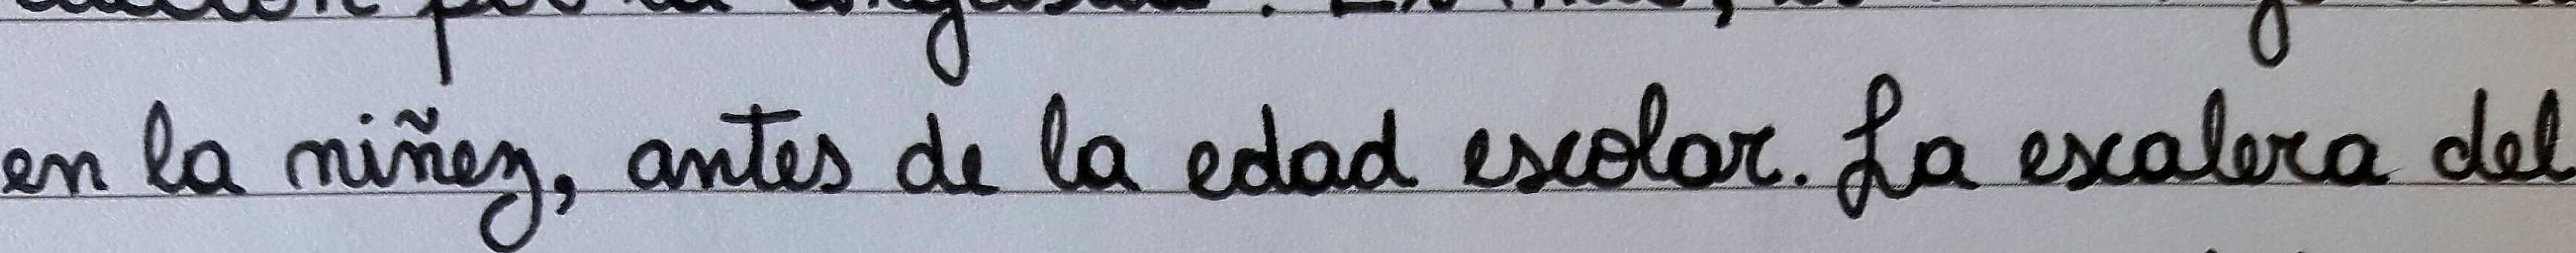 en la niñez, antes de la edad escolar. La escalera del